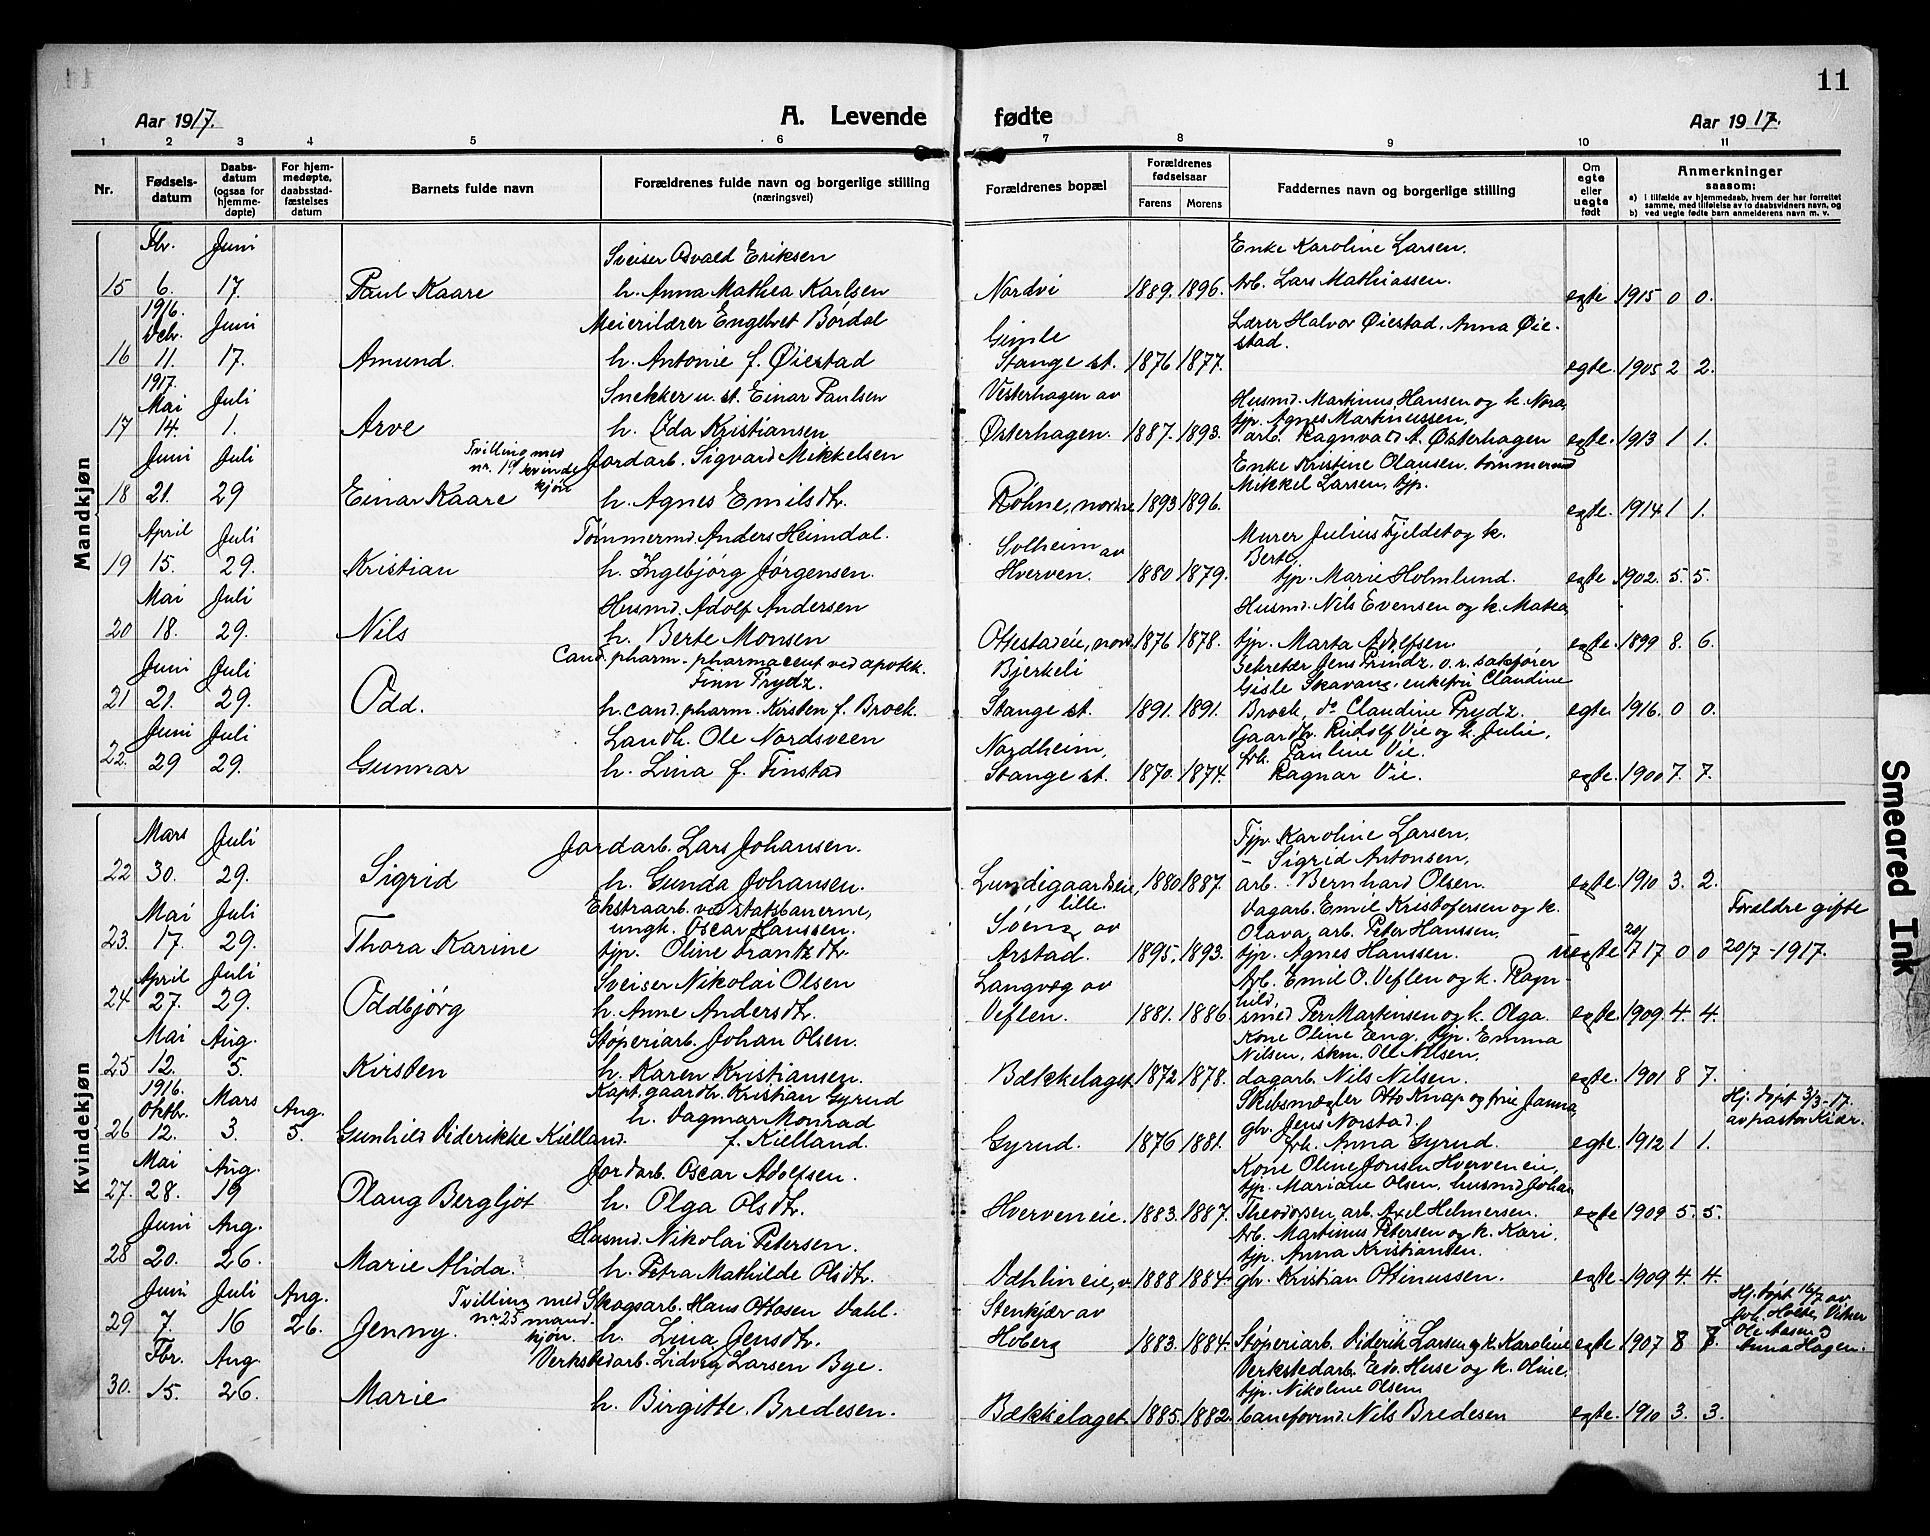 11
Aar 1917.
A. Levende
fødte
Aar 1917.
1 2 3 4 5 6 7 8 9 10 11
Nr.
Fødsels-
datum
Daabs-
datum
(ogsaa for
hjemme-
døpte)
For hjem-
medøpte,
daabsstad-
fæstelses
datum
Barnets fulde navn
Forældrenes fulde navn og borgerlige stilling
(næringsvei)
Forældrenes bopæl
Forældrenes
fødselsaar
Farens Morens
Faddernes navn og borgerlige stilling
Om
egte
eller
uegte
født
Anmerkninger
saasom:
a) I tilfælde av hjemmedaab, hvem der har forrettet
samme, med tilføielse av to daabsvidners navn, og
b) ved uegte fødte barn anmelderens navn m. v.
Mandkjøn
Fbr. Juni Sveiser Osvald Eriksen Enke Karoline Larsen.
15 6. 17. Paul Kaare h. Anna Mathea Karlsen Nordvi 1889. 1896. Arb. Lars Mathiassen. egte 1915 0 0.
1916. Debr. Juni Meierilærer Engebret Børdal Gimle Lærer Halvor Øiestad, Anna Øie-
stad.
16 11. 17. Amund. h. Antonie f. Øiestad Stange st. 1876 1877. egte. 1905 2 2.
1917. Mai Juli Snekker u. st. Einar Paulsen Vesterhagen av Husmd. Martinus Hansen og k. Nora,
tjp. Agnes Martinussen,
17 14. 1. Arve h. Oda Kristiansen Østerhagen. 1887. 1893. arb. Ragnvald A. Østerhagen egte. 1913 1 1.
Juni Juli Tvilling med
nr. 19 kvinde
kjøn Jordarb. Sigvard Mikkelsen Enke Kristine Olausen, tømmermd
Mikkel Larsen, tjp.
18 21. 29 Einar Kaare h. Agnes Emilsdtr. Rohne, nordre 1893 1896. egte. 1914 1 1.
April Juli Tømmermd. Anders Heimdal. Solheim av Murer Julius Fjeldet og k.
Berte,
19 15. 29. Kristian h. Ingebjørg Jørgensen. Hverven. 1880 1879. tjp. Marie Holmlund. egte 1902. 5. 5.
Mai Juli Husmd. Adolf Andersen Husmd. Nils Evensen og k. Matea,
20 18. 29. Nils h. Berte Monsen Ottestadeie, nord. 1876 1878. tjp. Marta Adolfsen. egte. 1899 8. 6.
Juni Juli Cand. pharm. pharmaceut ved apothk.
Finn Prydz. Bjerkeli Sekretær Jens Prindz. o.r. sakfører
Gisle Skavang, enkefru Claudine
21 21. 29. Odd. h. cand. pharm. Kirsten f. Brock. Stange st. 1891. 1891. Brock, do Claudine Prydz. egte. 1916. 0 0.
Juni Juli Landh. Ole Nordsveen Nordheim, Gaardbr. Rudolf Vie og k. Julie,
frk. Pauline Vie.
22. 29 29. Gunnar h. Lina f. Finstad Stange st. 1870. 1874. Ragnar Vie. egte. 1900 7. 7.
Kvindekjøn
Mars Juli Jordarb. Lars Johansen. Tjp. Karoline Larsen,
- Sigrid Antonsen,
22 30. 29. Sigrid h. Gunda Johansen. Lundigaardseie, lille. 1880 1887. arb. Bernhard Olsen. egte. 1910 3. 2.
Mai Juli Ekstraarb. ved statsbanerne,
ungk. Oscar Hanssen. Dagarb. Emil Kristofersen og k.
Olava, arb. Peter Hanssen, Forældre gifte
23. 17. 29. Thora Karine tjp. Oline Frantzdtr. Arstad. 1895. 1893. tjp. Agnes Hanssen. uegte 20/7 17 0 0 20/7 - 1917.
April Juli Sveiser Nikolai Olsen Langvæg av Arb. Emil O. Veflen og k. Ragn-
hild,
24 27. 29. Oddbjørg h. Anne Andersdtr. Veflen. 1881. 1886. smed Per Martinsen og k. Olga. egte. 1909. 4. 4.
Mai Aug. Støperiarb. Johan Olsen. Kone Oline Eng, tjp. Emma
Nilsen, skm. Ole Nilsen,
25 12. 5. Kirsten h. Karen Kristiansen. Bækkelaget 1872 1878. dagarb. Nils Nilsen. egte. 1901 8 7.
1916. Oktbr. Mars Aug. Kapt. gaardbr. Kristian Gyrud
h. Dagmar Monrad Skibsmægler Otto Knap og frue Janna,
gbr. Jens Norstad, Hj. døpt 3/3-17.
av pastor Kiær.
26 12. 3. 5. Gunhild Diderikke Kielland. f. Kielland. Gyrud. 1876 1881. frk. Anna Gyrud. egte. 1912 1 1.
Mai Aug. Jordarb. Oscar Adolfsen. Kone Oline Jonsen Hverveneie,
tjp. Mariane Olsen, husmd Johan
27. 28. 19 Olaug Bergljot h. Olga Olsdtr. Hverveneie. 1883. 1887. Theodorsen, arb. Axel Helmersen. egte 1909 5. 5.
Juni Aug. Husmd. Nikolai Petersen. Arb. Martinus Petersen og k. Kari,
tjp. Anna Kristiansen.
28 20. 26. Marie Alida. h. Petra Mathilde Olsdtr. Dæhlin eie, v. 1888 1884. gbr. Kristian Ottinussen. egte. 1909 4. 4.
Juni Juli Aug. Tvilling med
nr 25 mand-
kjøn. Skogsarb. Hans Ottosen Dahl. Stenkjær av Hj. døpt 16/7 av
Joh. Holte, Vidner
Ole Aasen og
Anna Hagen.
29 7. 16 26. Jenny. h. Lina Jensdtr. Hoberg 1883. 1884. Støperiarb. Diderik Larsen og k. Karoline egte 1907 8 7.
Fbr. Aug. Verkstedarb. Lidvig Larsen Bye. Verkstedarb. Edv. Huse og k. Oline,
tjp. Nikoline Olsen,
30. 15. 26. Marie h. Birgitte Bredesen. Bækkelaget 1885. 1882. baneformd. Nils Bredesen egte. 1910 3. 3.
Smeared Ink